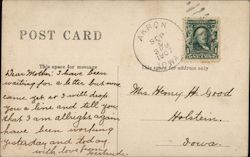 POST CARD
This space for message
This space for address only
AKRON
SEP
1907
IOWA
Dear Mother: I have been
waiting for a letter but none
came yet so I will drop
you a line and tell you
that I am allright again
have been working
yesterday and today
with love from
Mrs. Henry H. Good
Holstein.
Iowa.